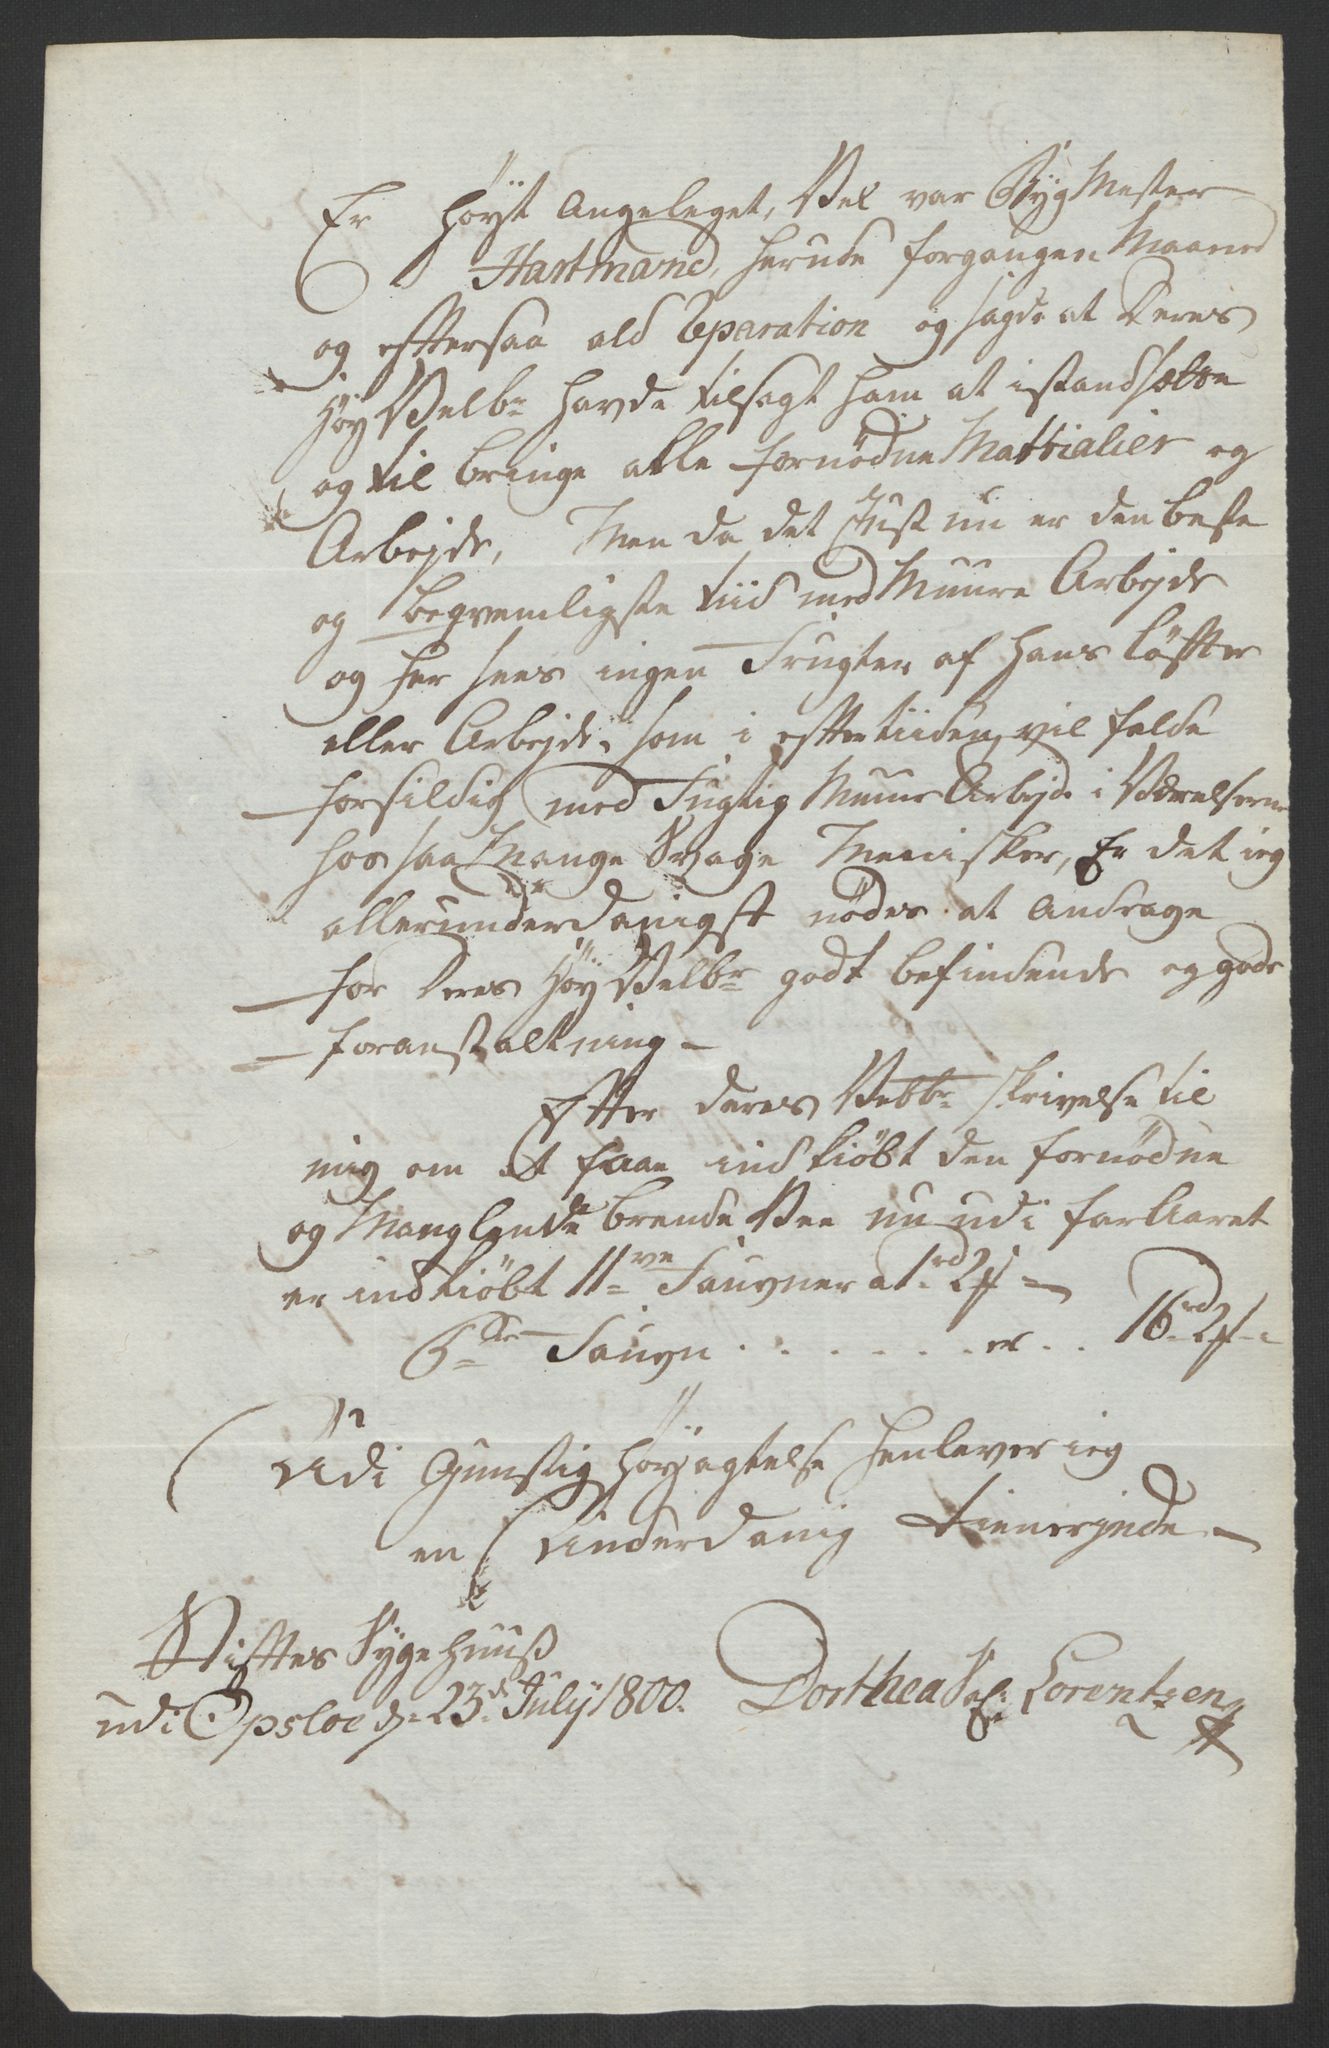 Er höyt Angeleget, Vel var Byg Mester
Hartmand, herude forgangen Maaned
og efftersaa ald Reparation og sagde at Deres
Höy Velbr havde tilsagt ham at istandsætte
og til bringe alle fornödne Mattrialier og
Arbejde, Men da det Just nu er den beste
og beqvemligste tiid med Muure Arbejde
og her sees ingen Frugter af hans löffter
eller Arbejde, som i effter tiiden vil falde
forsildig med Fugtig Muur Arbejde i Værelserne
hos saa Mange Svage Menisker, Er det ieg
allerunderdanigst nödes at Andrage
for Deres Höy Velbr godt befindende og gode
foranstaltning -
Effter deres Velbr skrivelse til
mig om at faae ind kiöbt den fornödne
og Manglende brende Vee nu udi for Aaret
er ind kiöbt 11ve Faugner a 1rd 2
Faugn . . . . . . . er . . 16rd 2
Udi Gunstig Höyagtelse henlever ieg
en Underdanig tienerinde -
Stifftes Sygehuuss
udi Opsloe d: 23de July 1800. Dorthea Sal: Lorentzen